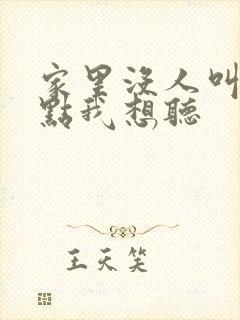 家里没人叫
點我想聽
王天笑